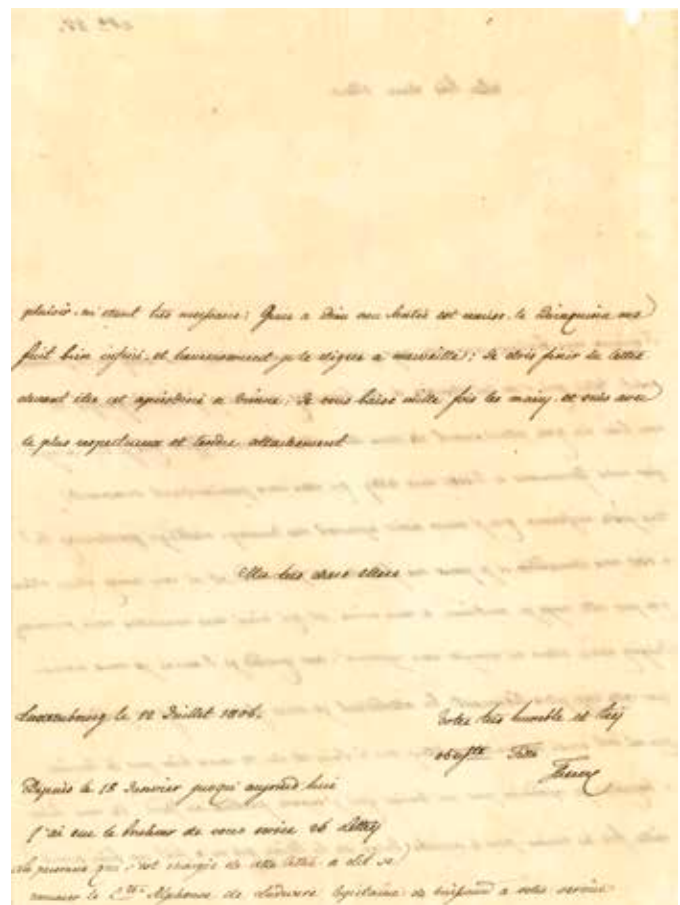 plaisir, en étant très nécessaire; Grace a dieu ma santée est remise, le Quinquina me
fait bien infusé, et heureusement je le digere a merveille; Je dois finir la lettre
devant être cet aprèsdiné a Vienne; Je vous baise mille fois les mains, et suis avec
le plus respectueux et tendre attachement
Ma très chere Mere
Laxembourg le 12 Juillet 1806.
Votre très humble et très
obeiste
Depuis le 18 Janvier jusqu'aujourd'hui
j'ai eue le honheur de vous ecrire 26 Lettres
La personne qui s'est chargée de cette lettre a dit se
nommer le Cte Alphonse de Capitaine de a votre service